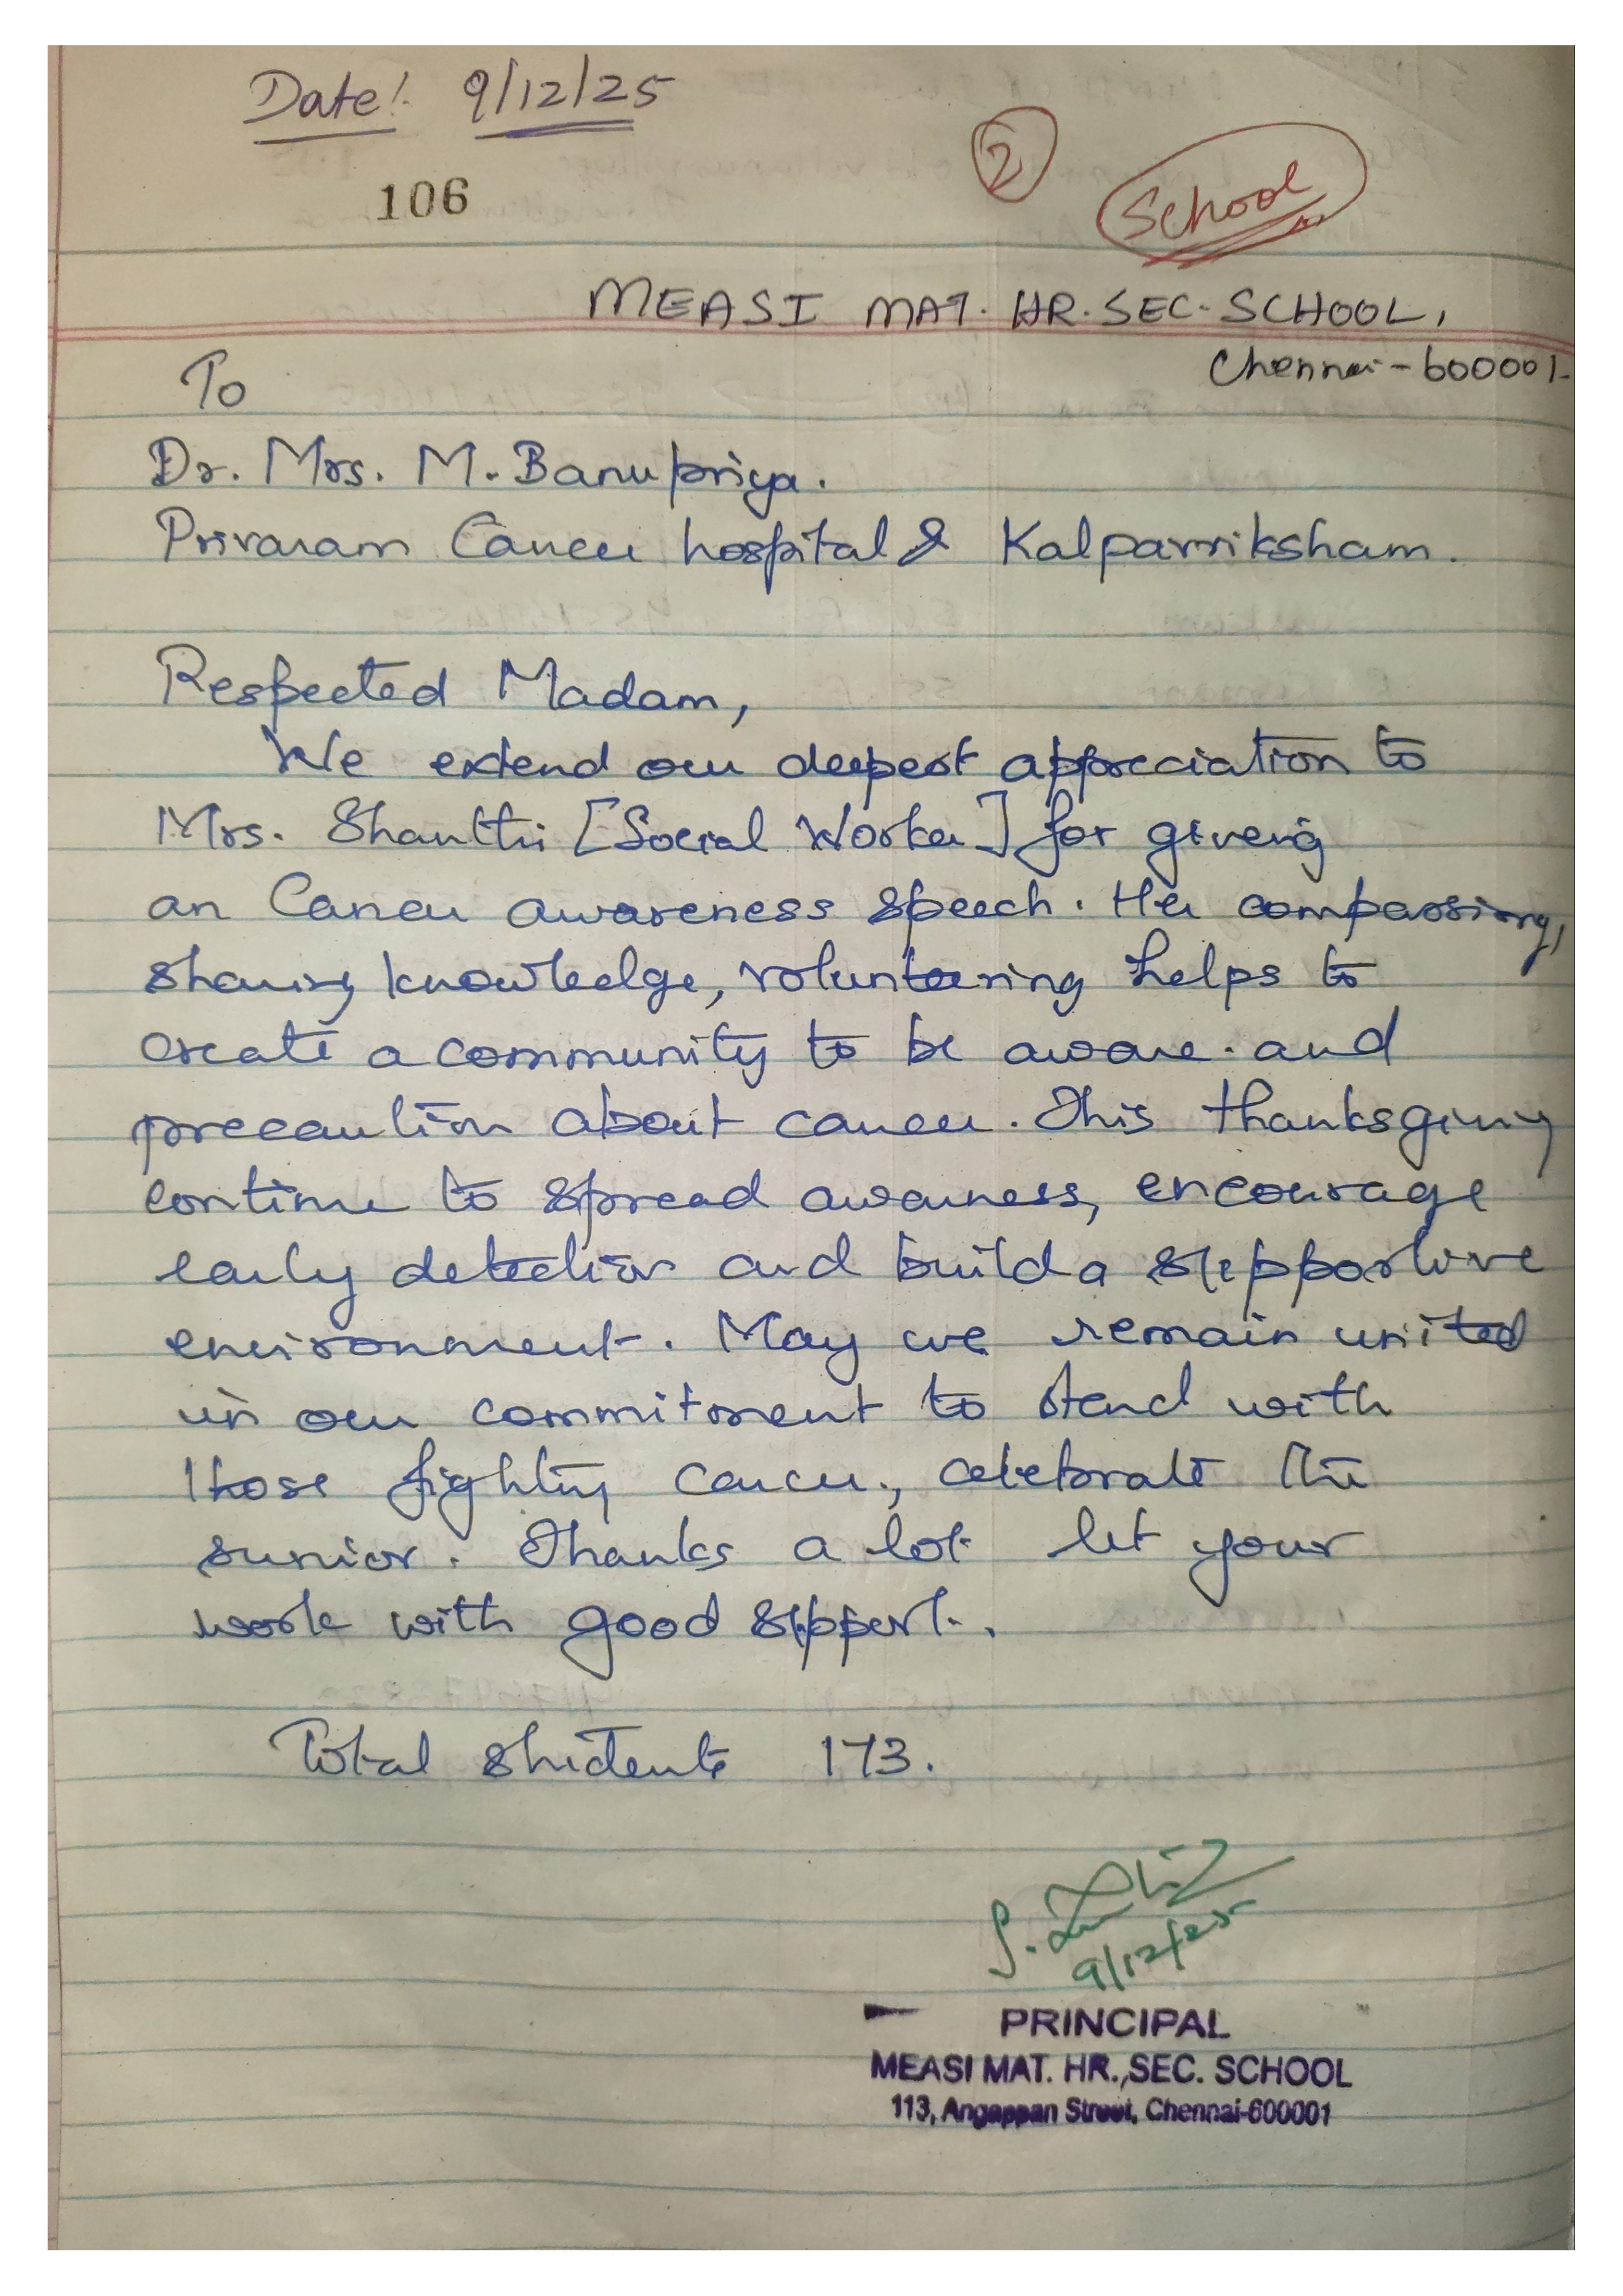 Date: 9/12/25
2
106
School
MEASI MAT. HR. SEC. SCHOOL,
Chennai - 600001.
To
Dr. Mrs. M. Banupriya.
Privaram Cancer hospital & Kalpavriksham.
Respected Madam,
We extend our deepest appreciation to
Mrs. Shanthi [Social Worker] for giveng
an Cancer awareness speech. Her compassiong,
sharing knowledge, voluntearing helps to
create a community to be aware. and
precaution about cancer. This thanksgiving
continue to spread awarness, encourage
early detection and build a supportive
environment. May we remain united
in our commitment to stand with
those fighting cancer., celebrate the
sunior. Thanks a lot let your
work with good support.
Total students 173.
9/12/25
PRINCIPAL
MEASI MAT. HR., SEC. SCHOOL
113, Angappan Street, Chennai-600001